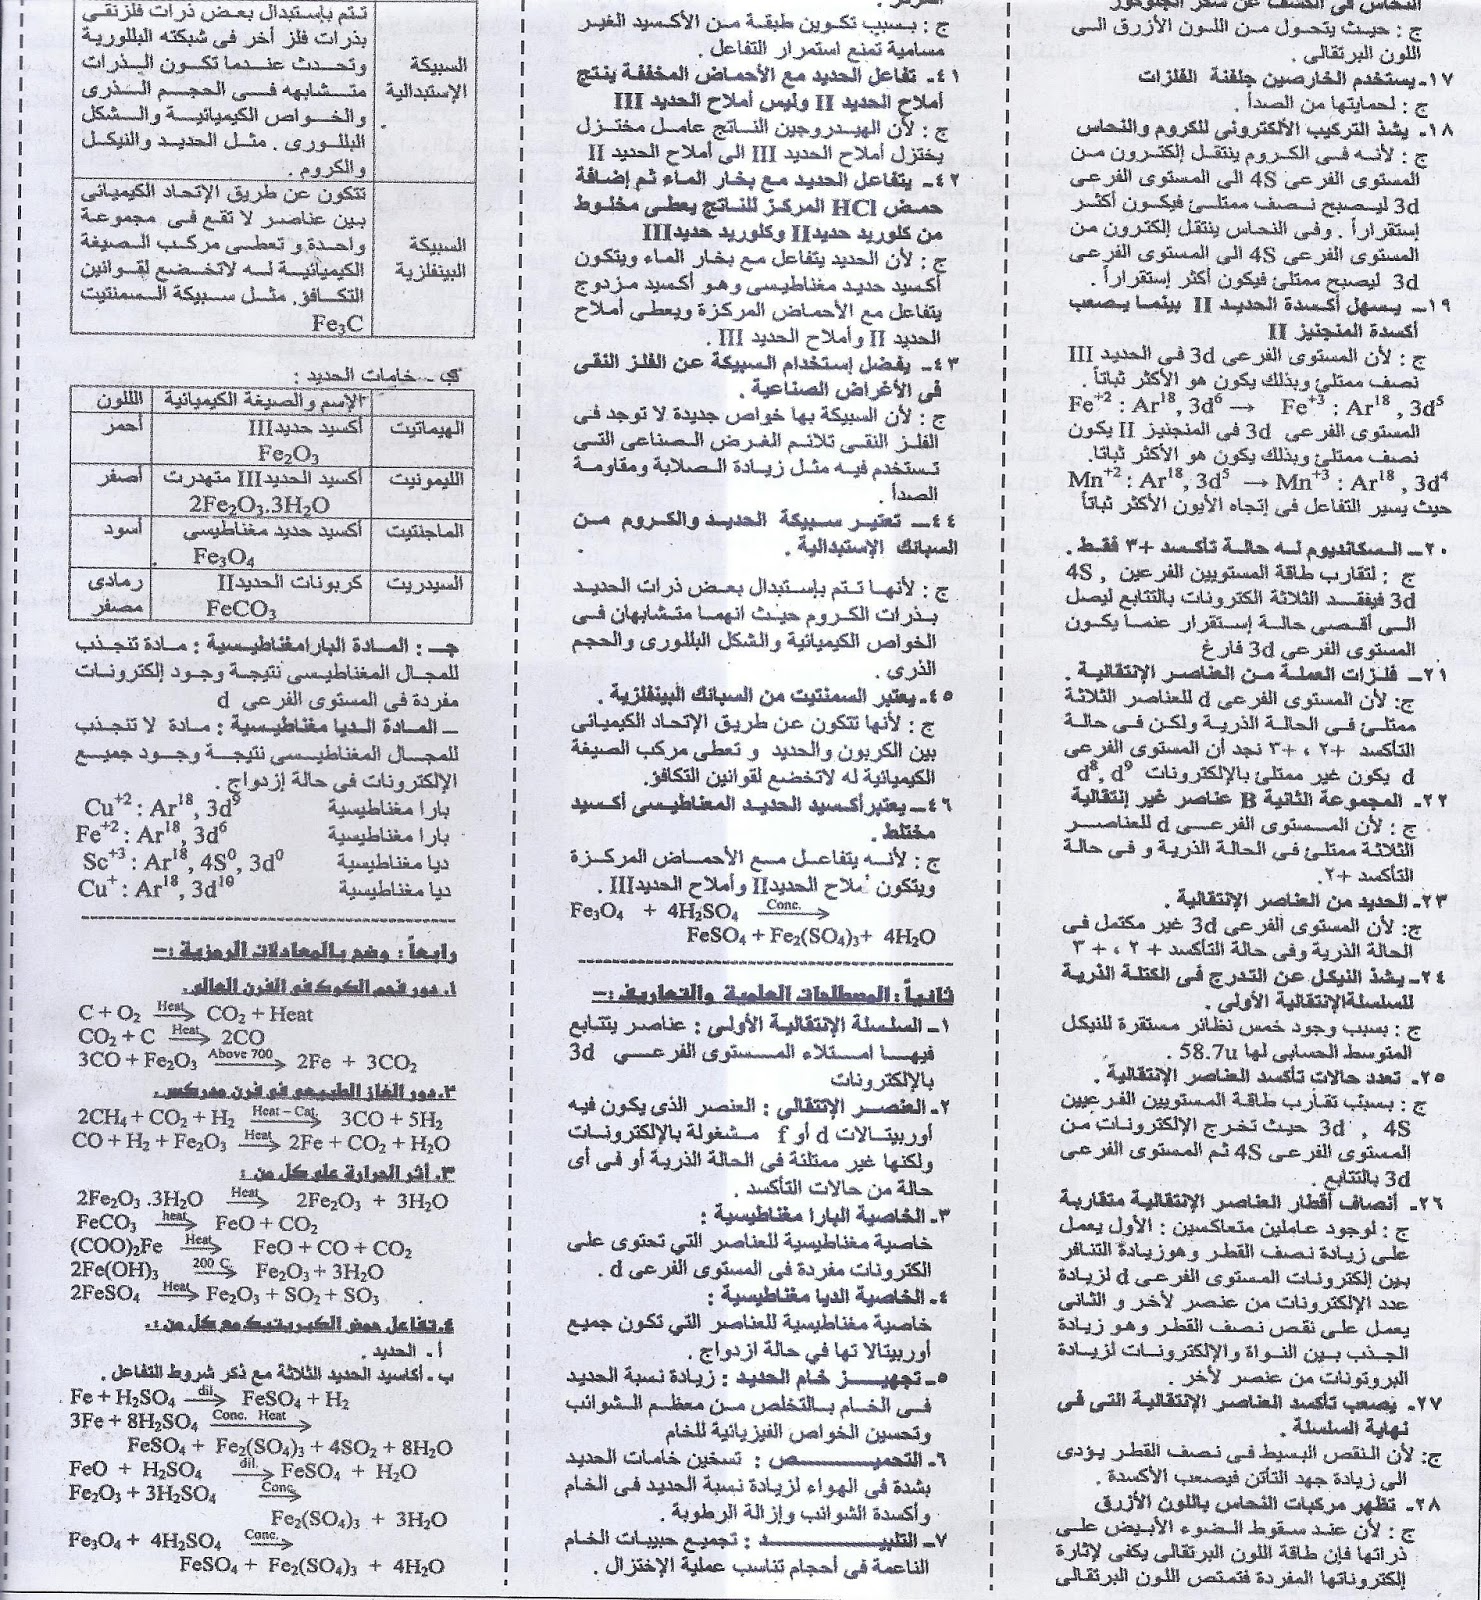 النحاس فى الكشف عن سكر الجلوكوز
ج : حيث يتحول من اللون الأزرق الى
اللون البرتقالى .
١٧-يستخدم الخارصين جلفنة الفلزات
ج : لحمايتها من الصدأ .
١٨- يشذ التركيب الألكترونى للكروم والنحاس
ج : لأنه فى الكروم ينتقل إلكترون من
المستوى الفرعى 4S الى المستوى الفرعى
3d ليصبح نصف ممتلئ فيكون أكثر
إستقراراً . وفى النحاس ينتقل إلكترون من
المستوى الفرعى 4S الى المستوى الفرعى
3d ليصبح ممتلئ فيكون أكثر إستقراراً .
١٩- يسهل أكسدة الحديد II بينما يصعب
أكسدة المنجنيز II
ج : لأن المستوى الفرعى 3d فى الحديد III
نصف ممتلئ وبذلك يكون هو الأكثر ثباتاً .
Fe⁺² : Ar¹⁸, 3d⁶ → Fe⁺³ : Ar¹⁸ , 3d⁵
المستوى الفرعى 3d فى المنجنيز II يكون
نصف ممتلئ وبذلك يكون هو الأكثر ثباتا.
Mn⁺² : Ar¹⁸, 3d⁵ → Mn⁺³ : Ar¹⁸ , 3d⁴
حيث يسير التفاعل فى إتجاه الأيون الأكثر ثباتاً
٢٠- السكانديوم له حالة تأكسد +٣ فقط .
ج : لتقارب طاقة المستويين الفرعين 4S ,
3d فيفقد الثلاثة الكترونات بالتتابع ليصل
الى أقصى حالة إستقرار عنما يكون
المستوى الفرعى 3d فارغ
٢١- فلزات العملة من العناصر الإنتقالية .
ج: لأن المستوى الفرعى d للعناصر الثلاثة
ممتلئ فى الحالة الذرية ولكن فى حالة
التأكسد +٢ ، +٣ نجد أن المستوى الفرعى
d يكون غير ممتلئ بالإلكترونات d⁸, d⁹
٢٢- المجموعة الثانية B عناصر غير إنتقالية
ج : لأن المستوى الفرعى d للعناصر
الثلاثة ممتلئ فى الحالة الذرية و فى حالة
التأكسد +٢.
٢٣- الحديد من العناصر الإنتقالية .
ج: لأن المستوى الفرعى 3d غير مكتمل فى
الحالة الذرية وفى حالة التأكسد + ٢ ، + ٣
٢٤- يشذ النيكل عن التدرج فى الكتلة الذرية
للسلسلةالإنتقالية الأولى .
ج : بسبب وجود خمس نظائر مستقرة للنيكل
المتوسط الحسابى لها 58.7u .
٢٥- تعدد حالات تأكسد العناصر الإنتقالية .
ج : بسبب تقارب طاقة المستويين الفرعيين
4S , 3d حيث تخرج الإلكترونات من
المستوى الفرعى 4S ثم المستوى الفرعى
3d بالتتابع .
٢٦- أنصاف أقطار العناصر الإنتقالية متقاربة
ج : لوجود عاملين متعاكسين : الأول يعمل
على زيادة نصف القطر وهوزيادة التنافر
بين إلكترونات المستوى الفرعى d لزيادة
عدد الإلكترونات من عنصر لأخر و الثانى
يعمل على نقص نصف القطر وهو زيادة
الجذب بين النواة والإلكترونات لزيادة
البروتونات من عنصر لأخر .
٢٧- يصعب تأكسد العناصر الإنتقالية التى فى
نهاية السلسلة .
ج: لأن النقص البسيط فى نصف القطر يؤدى
الى زيادة جهد التأين فيصعب الأكسدة .
٢٨- تظهر مركبات النحاس باللون الأزرق
ج : لأن عند سقوط الضوء الأبيض على
ذراتها فإن طاقة اللون البرتقالى يكفى لإثارة
إلكتروناتها المفردة فتمتص اللون البرتقالى
ج : بسبب تكوين طبقة من الأكسيد الغير
مسامية تمنع استمرار التفاعل .
٤١- تفاعل الحديد مع الأحماض المخففة ينتج
أملاح الحديد II وليس أملاح الحديد III
ج : لأن الهيدروجين الناتج عامل مختزل
يختزل أملاح الحديد III الى أملاح الحديد II
٤٢- يتفاعل الحديد مع بخار الماء ثم إضافة
حمض HCl المركز للناتج يعطى مخلوط
من كلوريد حديدII وكلوريد حديدIII
ج : لأن الحديد يتفاعل مع بخار الماء ويتكون
أكسيد حديد مغناطيسى وهو أكسيد مزدوج
يتفاعل مع الأحماض المركزة ويعطى أملاح
الحديد II وأملاح الحديد III .
٤٣- يفضل إستخدام السبيكة عن الفلز النقى
فى الأغراض الصناعية .
ج : لأن السبيكة بها خواص جديدة لا توجد فى
الفلز النقى تلائم الغرض الصناعى التى
تستخدم فيه مثل زيادة الصلابة ومقاومة
الصدأ .
٤٤- تعتبر سبيكة الحديد والكروم من
السبائك الإستبدالية .
ج : لأنها تتم بإستبدال بعض ذرات الحديد
بذرات الكروم حيث انهما متشابهان فى
الخواص الكيميائية والشكل البللورى والحجم
الذرى .
٤٥- يعتبر السمنتيت من السبائك البينفلزية .
ج : لأنها تتكون عن طريق الإتحاد الكيميائى
بين الكربون والحديد و تعطى مركب الصيغة
الكيميائية له لاتخضع لقوانين التكافؤ.
٤٦- يعتبرأكسيد الحديد المغناطيسى أكسيد
مختلط .
ج : لأنه يتفاعل مع الأحماض المركزة
ويتكون أملاح الحديدII وأملاح الحديدIII .
Fe₃O₄ + 4H₂SO₄ —Conc.→
FeSO₄ + Fe₂(SO₄)₃+ 4H₂O
ثانياً : المصطلحات العلمية والتعاريف :-
١- السلسلة الإنتقالية الأولى : عناصر يتتابع
فيها امتلاء المستوى الفرعى 3d
بالإلكترونات
٢- العنصر الإنتقالى : العنصر الذى يكون فيه
أوربيتالات d أو f مشغولة بالإلكترونات
ولكنها غير ممتلئة فى الحالة الذرية أو فى أى
حالة من حالات التأكسد .
٣- الخاصية البارا مغناطيسية :
خاصية مغناطيسية للعناصر التي تحتوى على
الكترونات مفردة فى المستوى الفرعى d .
٤- الخاصية الديا مغناطيسية :
خاصية مغناطيسية للعناصر التي تكون جميع
أوربيتالا تها في حالة ازدواج .
٥- تجهيز خام الحديد : زيادة نسبة الحديد
فى الخام بالتخلص من معظم الشوائب
وتحسين الخواص الفيزيائية للخام
٦- التحميص : تسخين خامات الحديد
بشدة فى الهواء لزيادة نسبة الحديد فى الخام
وأكسدة الشوائب وإزالة الرطوبة .
٧- التلبيد : تجميع حبيبات الخام
الناعمة فى أحجام تناسب عملية الإختزال .
السبيكة الإستبدالية
تتم بإستبدال بعض ذرات فلزنقى
بذرات فلز أخر فى شبكته البللورية
وتحدث عندما تكون الذرات
متشابهه فى الحجم الذرى
والخواص الكيميائية والشكل
البللورى . مثل الحديد والنيكل
والكروم .
السبيكة البينفلزية
تتكون عن طريق الإتحاد الكيميائى
بين عناصر لا تقع فى مجموعة
واحدة و تعطى مركب الصيغة
الكيميائية له لاتخضع لقوانين
التكافؤ. مثل سبيكة السمنتيت
Fe₃C
ب - خامات الحديد :
الإسم والصيغة الكيميائية اللون
الهيماتيت أكسيد حديدIII أحمر
Fe₂O₃
الليمونيت أكسيد الحديدIII متهدرت أصفر
2Fe₂O₃.3H₂O
الماجنتيت أكسيد حديد مغناطيسى أسود
Fe₃O₄ .
السيدريت كربونات الحديدII رمادى
FeCO₃ مصفر
جـ : المادة البارامغناطيسية : مادة تنجذب
للمجال المغناطيسي نتيجة وجود إلكترونات
مفردة فى المستوى الفرعى d
- المادة الديا مغناطيسية : مادة لا تنجذب
للمجال المغناطيسى نتيجة وجود جميع
الإلكترونات في حالة إزدواج .
Cu⁺² : Ar¹⁸, 3d⁹ بارا مغناطيسية
Fe⁺² : Ar¹⁸, 3d⁶ بارا مغناطيسية
Sc⁺³ : Ar¹⁸, 4S⁰, 3d⁰ ديا مغناطيسية
Cu⁺ : Ar¹⁸, 3d¹⁰ ديا مغناطيسية
رابعاً : وضح بالمعادلات الرمزية :-
١. دور فحم الكوك فى الفرن العالى.
C + O₂ —Heat→ CO₂ + Heat
CO₂ + C —Heat→ 2CO
3CO + Fe₂O₃ —Above 700→ 2Fe + 3CO₂
٢. دور الغاز الطبيعى فى فرن مدركس.
2CH₄ + CO₂ + H₂ —Heat – Cat.→ 3CO + 5H₂
CO + H₂ + Fe₂O₃ —Heat→ 2Fe + CO₂ + H₂O
٣. أثر الحرارة على كل من :
2Fe₂O₃ .3H₂O —Heat→ 2Fe₂O₃ + 3H₂O
FeCO₃ —heat→ FeO + CO₂
(COO)₂Fe —Heat→ FeO + CO + CO₂
2Fe(OH)₃ —200 C→ Fe₂O₃ + 3H₂O
2FeSO₄ —Heat→ Fe₂O₃ + SO₂ + SO₃
٤. تفاعل حمض الكبريتيك مع كل من :.
أ . الحديد .
ب . أكاسيد الحديد الثلاثة مع ذكر شروط التفاعل .
Fe + H₂SO₄ —dil→ FeSO₄ + H₂
3Fe + 8H₂SO₄ —Conc. Heat→
FeSO₄ + Fe₂(SO₄)₃ + 4SO₂ + 8H₂O
FeO + H₂SO₄ —dil.→ FeSO₄ + H₂O
Fe₂O₃ + 3H₂SO₄ —Conc→
Fe₂(SO₄)₃ + 3H₂O
Fe₃O₄ + 4H₂SO₄ —Conc.→
FeSO₄ + Fe₂(SO₄)₃ + 4H₂O